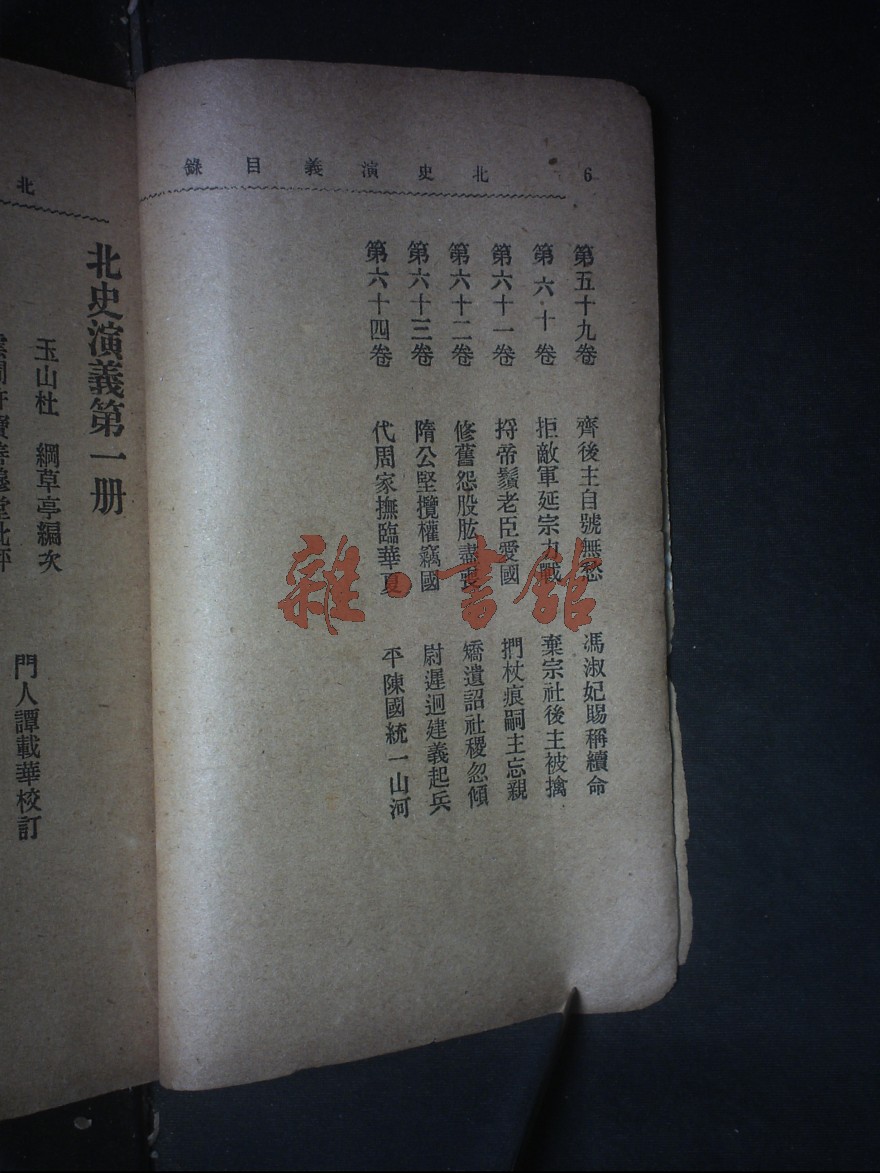 6 北史演義目錄
第五十九卷 齊後主自號無愁 馮淑妃賜稱續命
第六十卷 拒敵軍延宗力戰 棄宗社後主被擒
第六十一卷 捋帝鬚老臣愛國 捫杖痕嗣主忘親
第六十二卷 修舊怨股肱盡喪 矯遺詔社稷忽傾
第六十三卷 隋公堅攬權竊國 尉遲迥建義起兵
第六十四卷 代周家撫臨華夏 平陳國統一山河
雜·書館
北
北史演義第一册
玉山杜 綱草亭編次
門人譚載華校訂